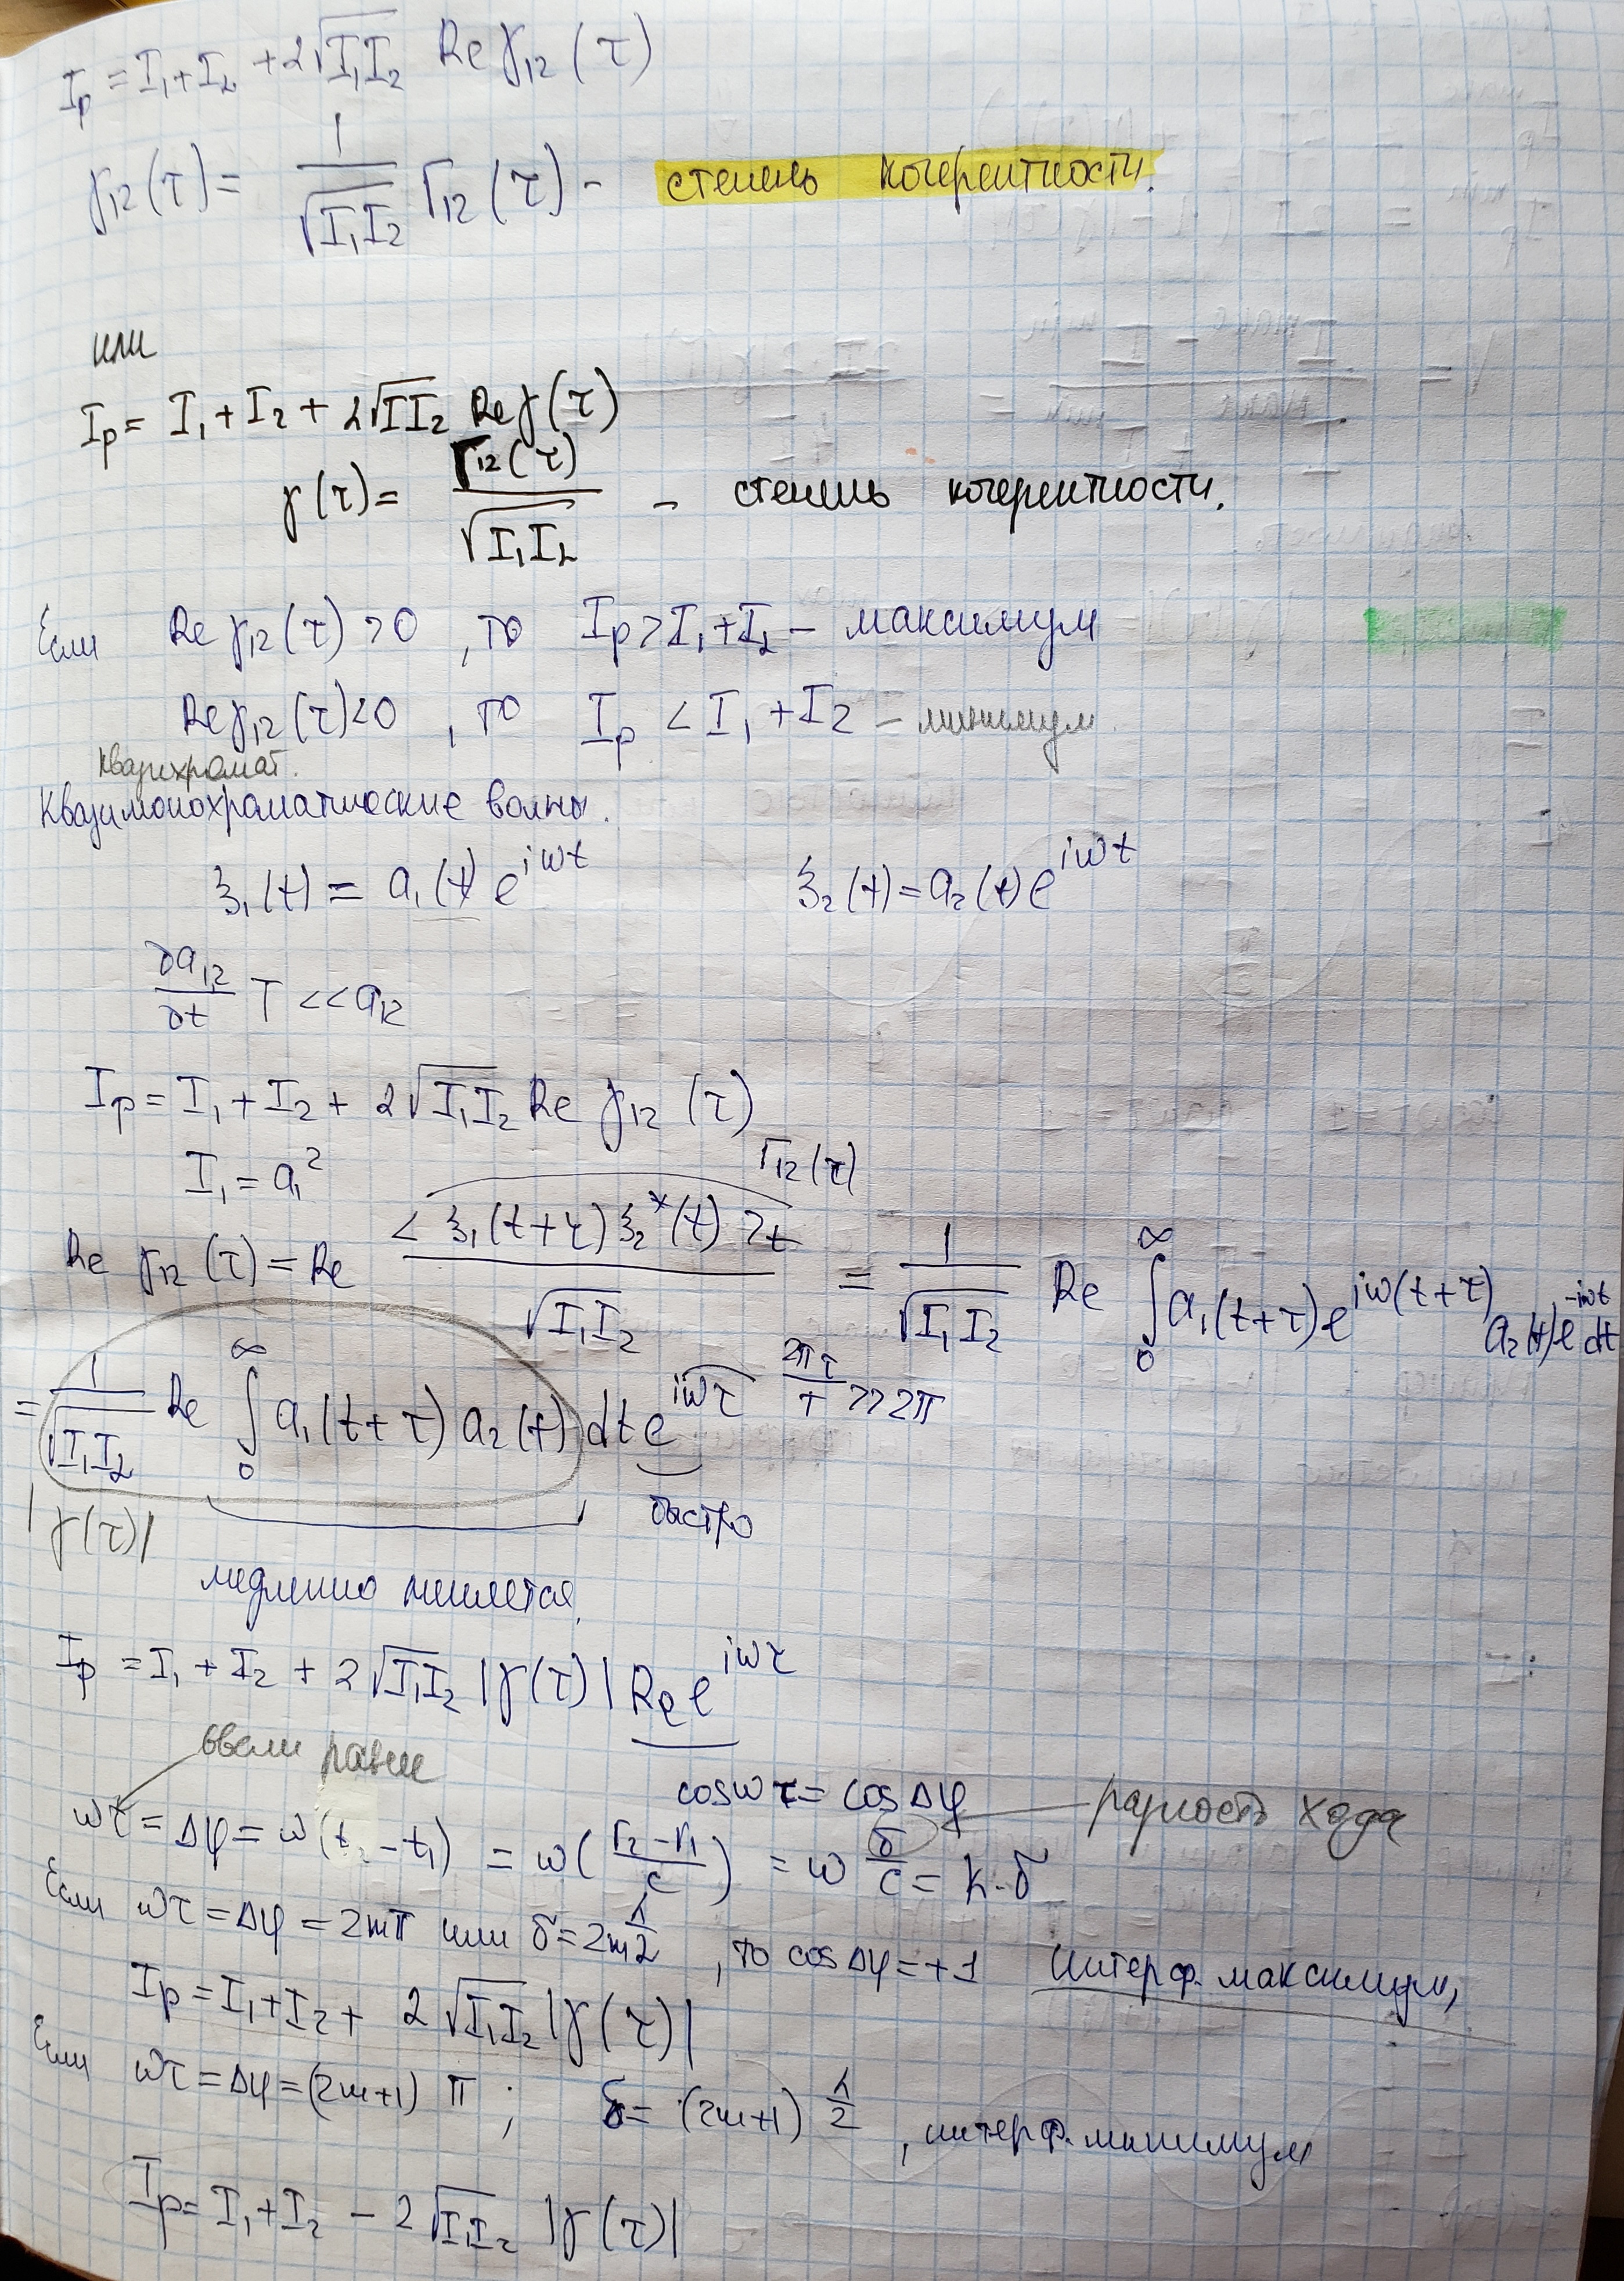 I_p = I_1 + I_2 + 2√(I_1I_2) Re γ_12 (τ)
γ_12 (τ) = 1/√(I_1I_2) Γ_12 (τ) - степень когерентности.
или
I_p = I_1 + I_2 + 2√(II_2) Re γ(τ)
γ(τ) = Γ_12(τ)/√(I_1I_2) - степень когерентности.
Если Re γ_12 (τ) > 0, то I_p > I_1 + I_2 - максимум
Re γ_12 (τ) < 0, то I_p < I_1 + I_2 - минимум
Квазихромат.
Квазимонохроматические волны.
ξ_1(t) = a_1(t) e^{iωt} ξ_2(t) = a_2(t) e^{iωt}
∂a_12/∂t T << a_12
I_p = I_1 + I_2 + 2√(I_1I_2) Re γ_12 (τ)
I_1 = a_1^2 Γ_12(τ)
Re γ_12 (τ) = Re <ξ_1(t+τ) ξ_2^*(t)>_t/√(I_1I_2) = 1/√(I_1I_2) Re ∫_0^∞ a_1(t+τ) e^{iω(t+τ)} a_2(t) e^{-iωt} dt
= 1/√(I_1I_2) Re ∫_0^∞ a_1(t+τ) a_2(t) dt e^{iωτ} 2πτ/T >> 2π
|γ(τ)| быстро
медленно меняется
I_p = I_1 + I_2 + 2√(I_1I_2) |γ(τ)| Re e^{iωτ}
ввели ранее
cos ωτ = cos Δφ разность хода
ωτ = Δφ = ω(t_2 - t_1) = ω((r_2 - r_1)/c) = ω δ/c = k·δ
Если ωτ = Δφ = 2mπ или δ = 2m λ/2, то cos Δφ = +1 интерф. максимум,
I_p = I_1 + I_2 + 2√(I_1I_2) |γ(τ)|
Если ωτ = Δφ = (2m+1) π; δ = (2m+1) λ/2, интерф. минимум
I_p = I_1 + I_2 - 2√(I_1I_2) |γ(τ)|